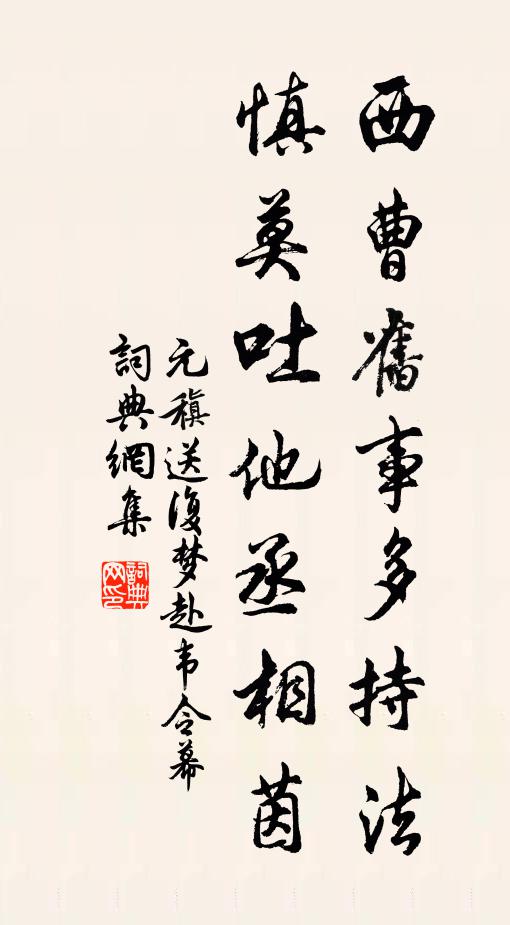 西曹舊事多持法
慎莫吐他丞相茵
元稹送復梦赴韦令幕
詞典網集
詞典网印